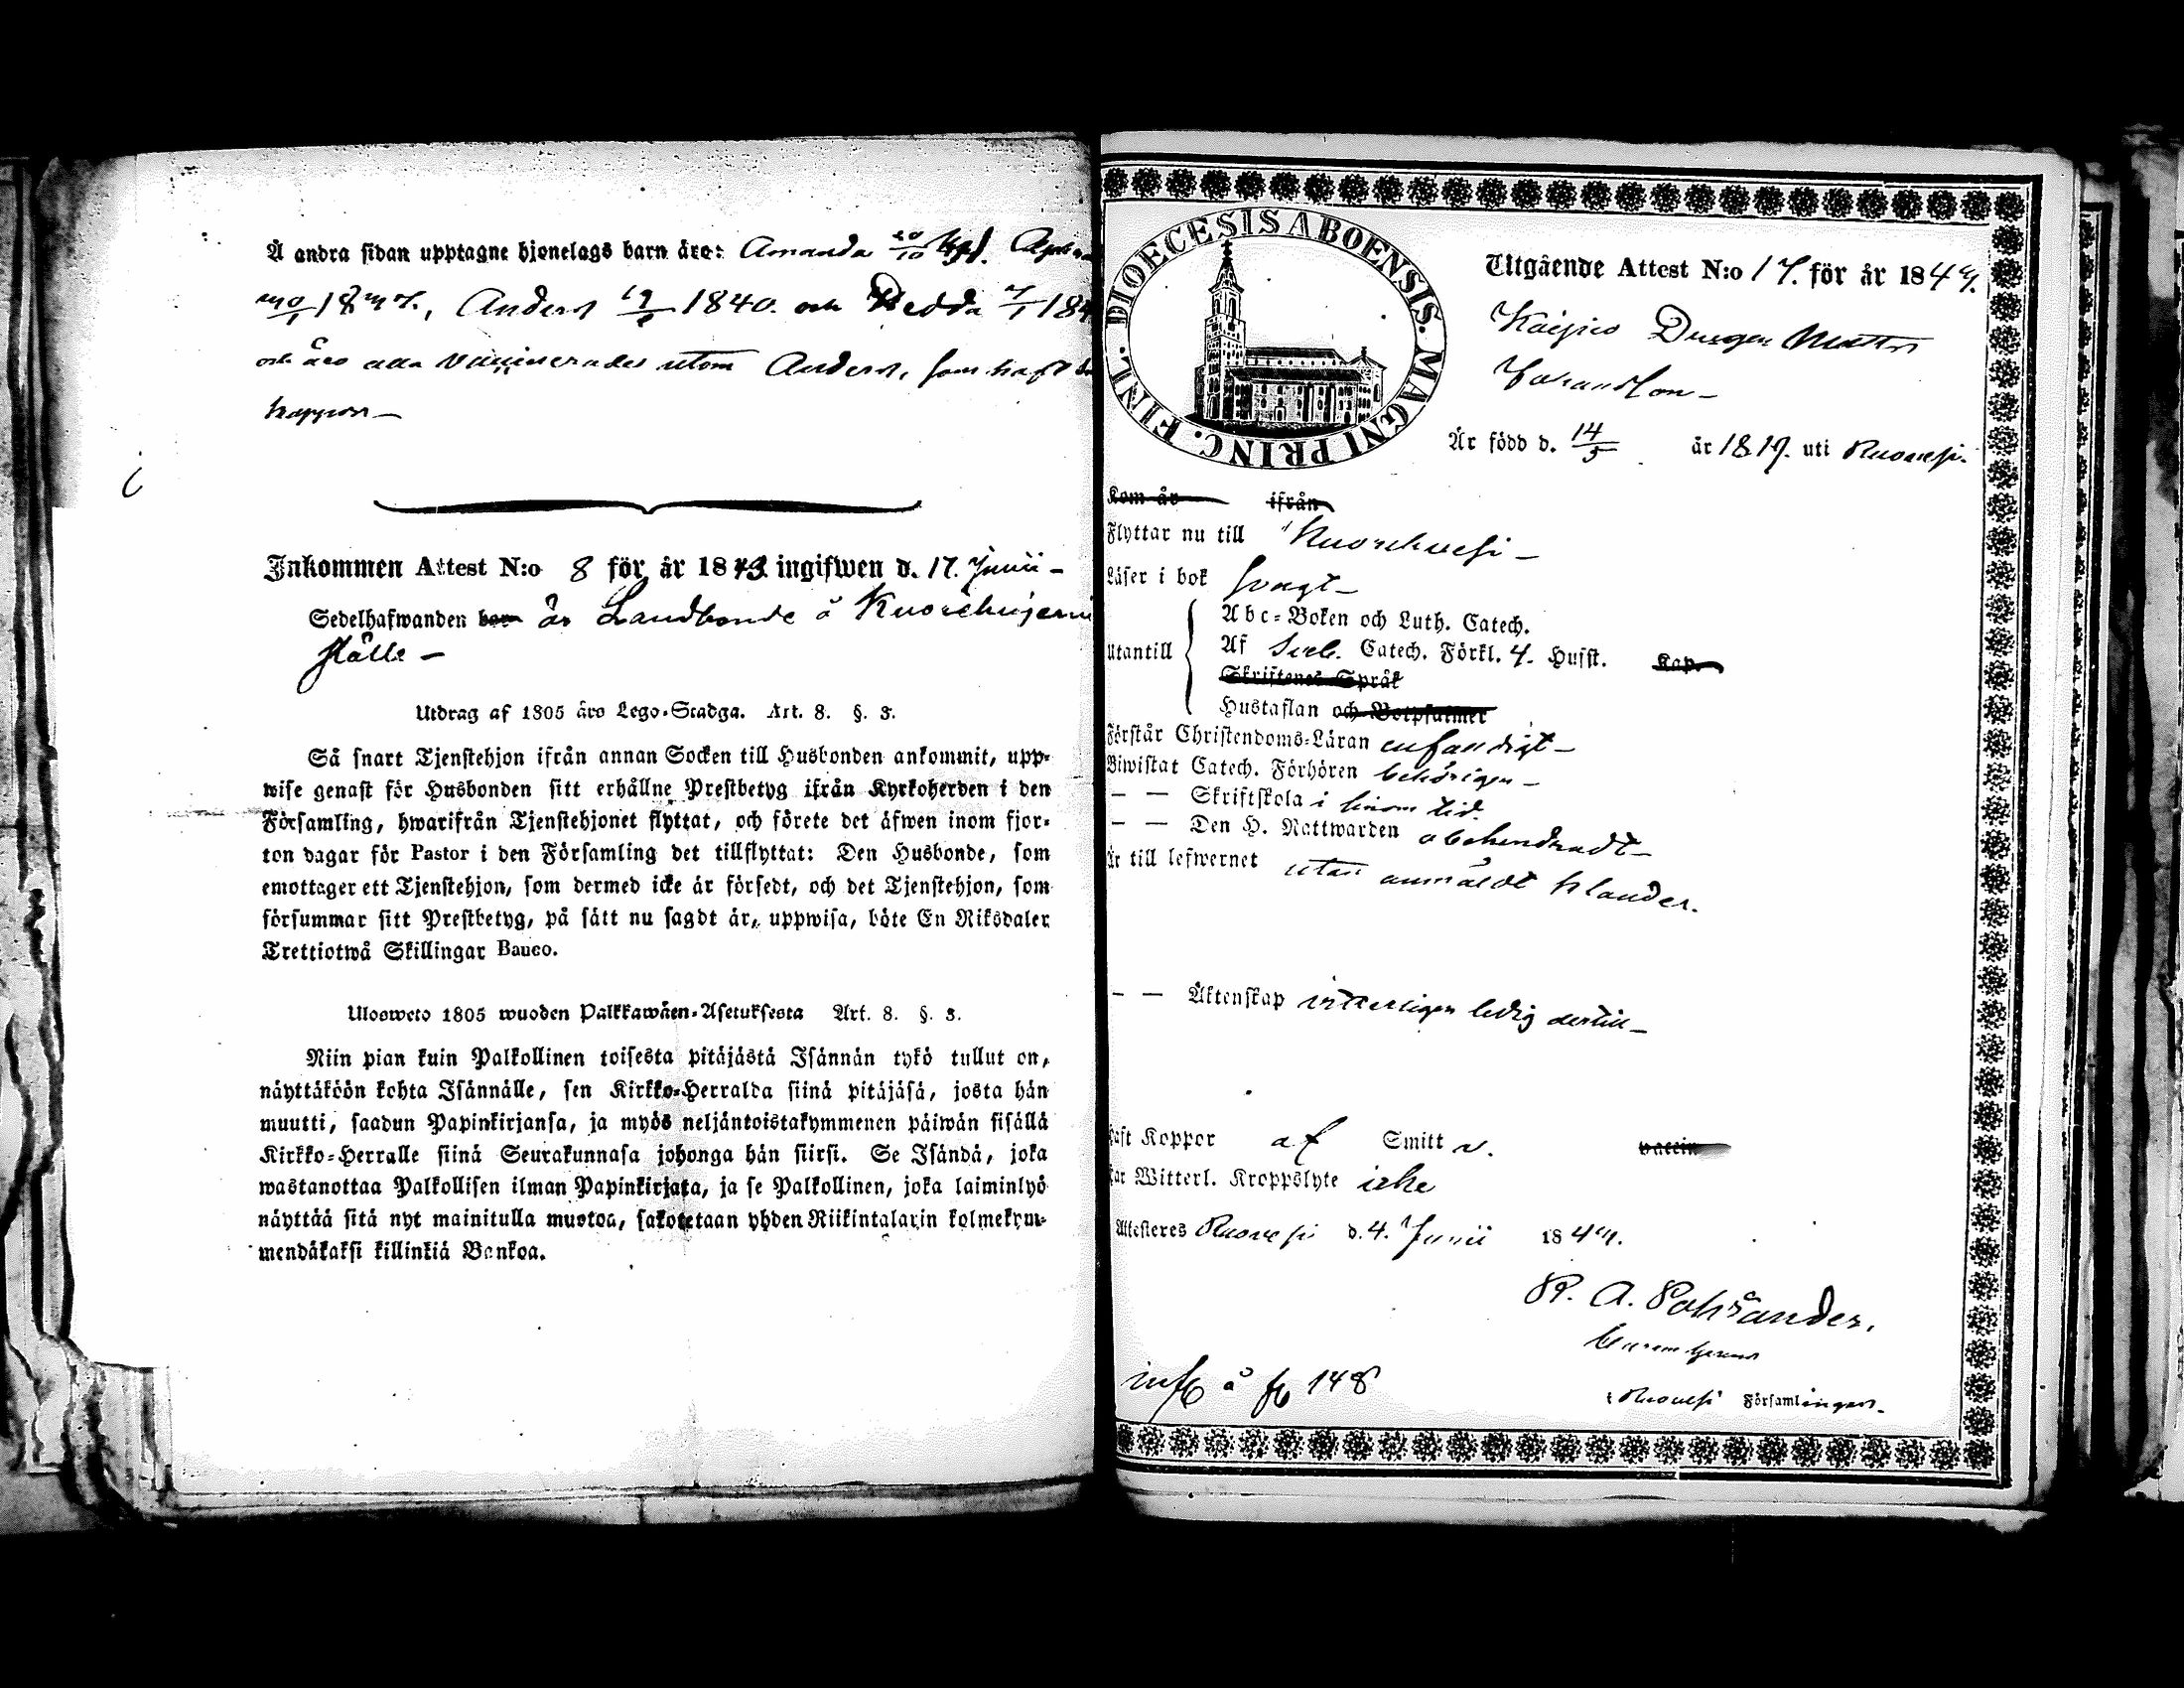 Å andra sidan upptagne hjonelags barn äro: Amanda 20/10
Anders 1840. och Hedda 7/1 184
och äro alla vaccinerade utom Anders, som haft
koppor —
Inkommen Attest N:o 8 för år 1843 ingifwen d. 17. Junii —
Sedelhafwanden är Landbonde å
ställe —
Utdrag af 1805 års Lego-Stadga. Art. 8. §. 3.
Så snart Tjenstehjon ifrån annan Socken till Husbonden ankommit, upp-
wise genast för Husbonden sitt erhållne Prestbetyg ifrån Kyrkoherden i den
Församling, hwarifrån Tjenstehjonet flyttat, och förete det äfwen inom fjor-
ton dagar för Pastor i den Församling det tillflyttat: Den Husbonde, som
emottager ett Tjenstehjon, som dermed icke är försedt, och det Tjenstehjon, som
försummar sitt Prestbetyg, på sätt nu sagdt är, uppwisa, böte En Riksdaler
Trettiotwå Skillingar Banco.
Ulosweto 1805 wuoden Palkkawäen-Asetuksesta Art. 8. §. 3.
Niin pian kuin Palkollinen toisesta pitäjästä Isännän tykö tullut on,
näyttäköön kohta Isännälle, sen Kirkko-Herralda siinä pitäjäsä, josta hän
muutti, saadun Papinkirjansa, ja myös neljäntoistakymmenen päiwän sisällä
Kirkko-Herralle siinä Seurakunnasa johonga hän siirsi. Se Isändä, joka
wastanottaa Palkollisen ilman Papinkirjata, ja se Palkollinen, joka laiminlyö
näyttää sitä nyt mainitulla muotoa, sakotetaan yhden Riikintalarin kolmekym-
mendäkaksi killinkiä Bankoa.
DIOECESIS ABOENSIS. MAGNI PRINC. FINL.
Utgående Attest N:o 17. för år 184
Drengen Matts
Är född d. 14/5 år 1819. uti Ruovesi.
Kom år ifrån
Flyttar nu till Kuorehvesi —
Läser i bok svagt —
Utantill
Abc-Boken och Luth. Catech.
Af Sveb. Catech. Förkl. 4. Hufst. Kap.
Skriftenes Språk
Hustaflan och Botpsalmer
Förstår Christendoms-Läran enfaldigt —
Biwistat Catech. Förhören behörigen —
— — Skriftskola i sinom tid
— — Den H. Nattwarden obehindradt —
Är till lefwernet utan anmäldt klander.
— — Äktenskap vitterligen ledig dertill —
Haft Koppor af Smitt v. vaccin
Har Witterl. Kroppslyte icke
Attesteras Ruovesi d. 4. Junii 184
Ruovesi Församlingen.
inf å f 148